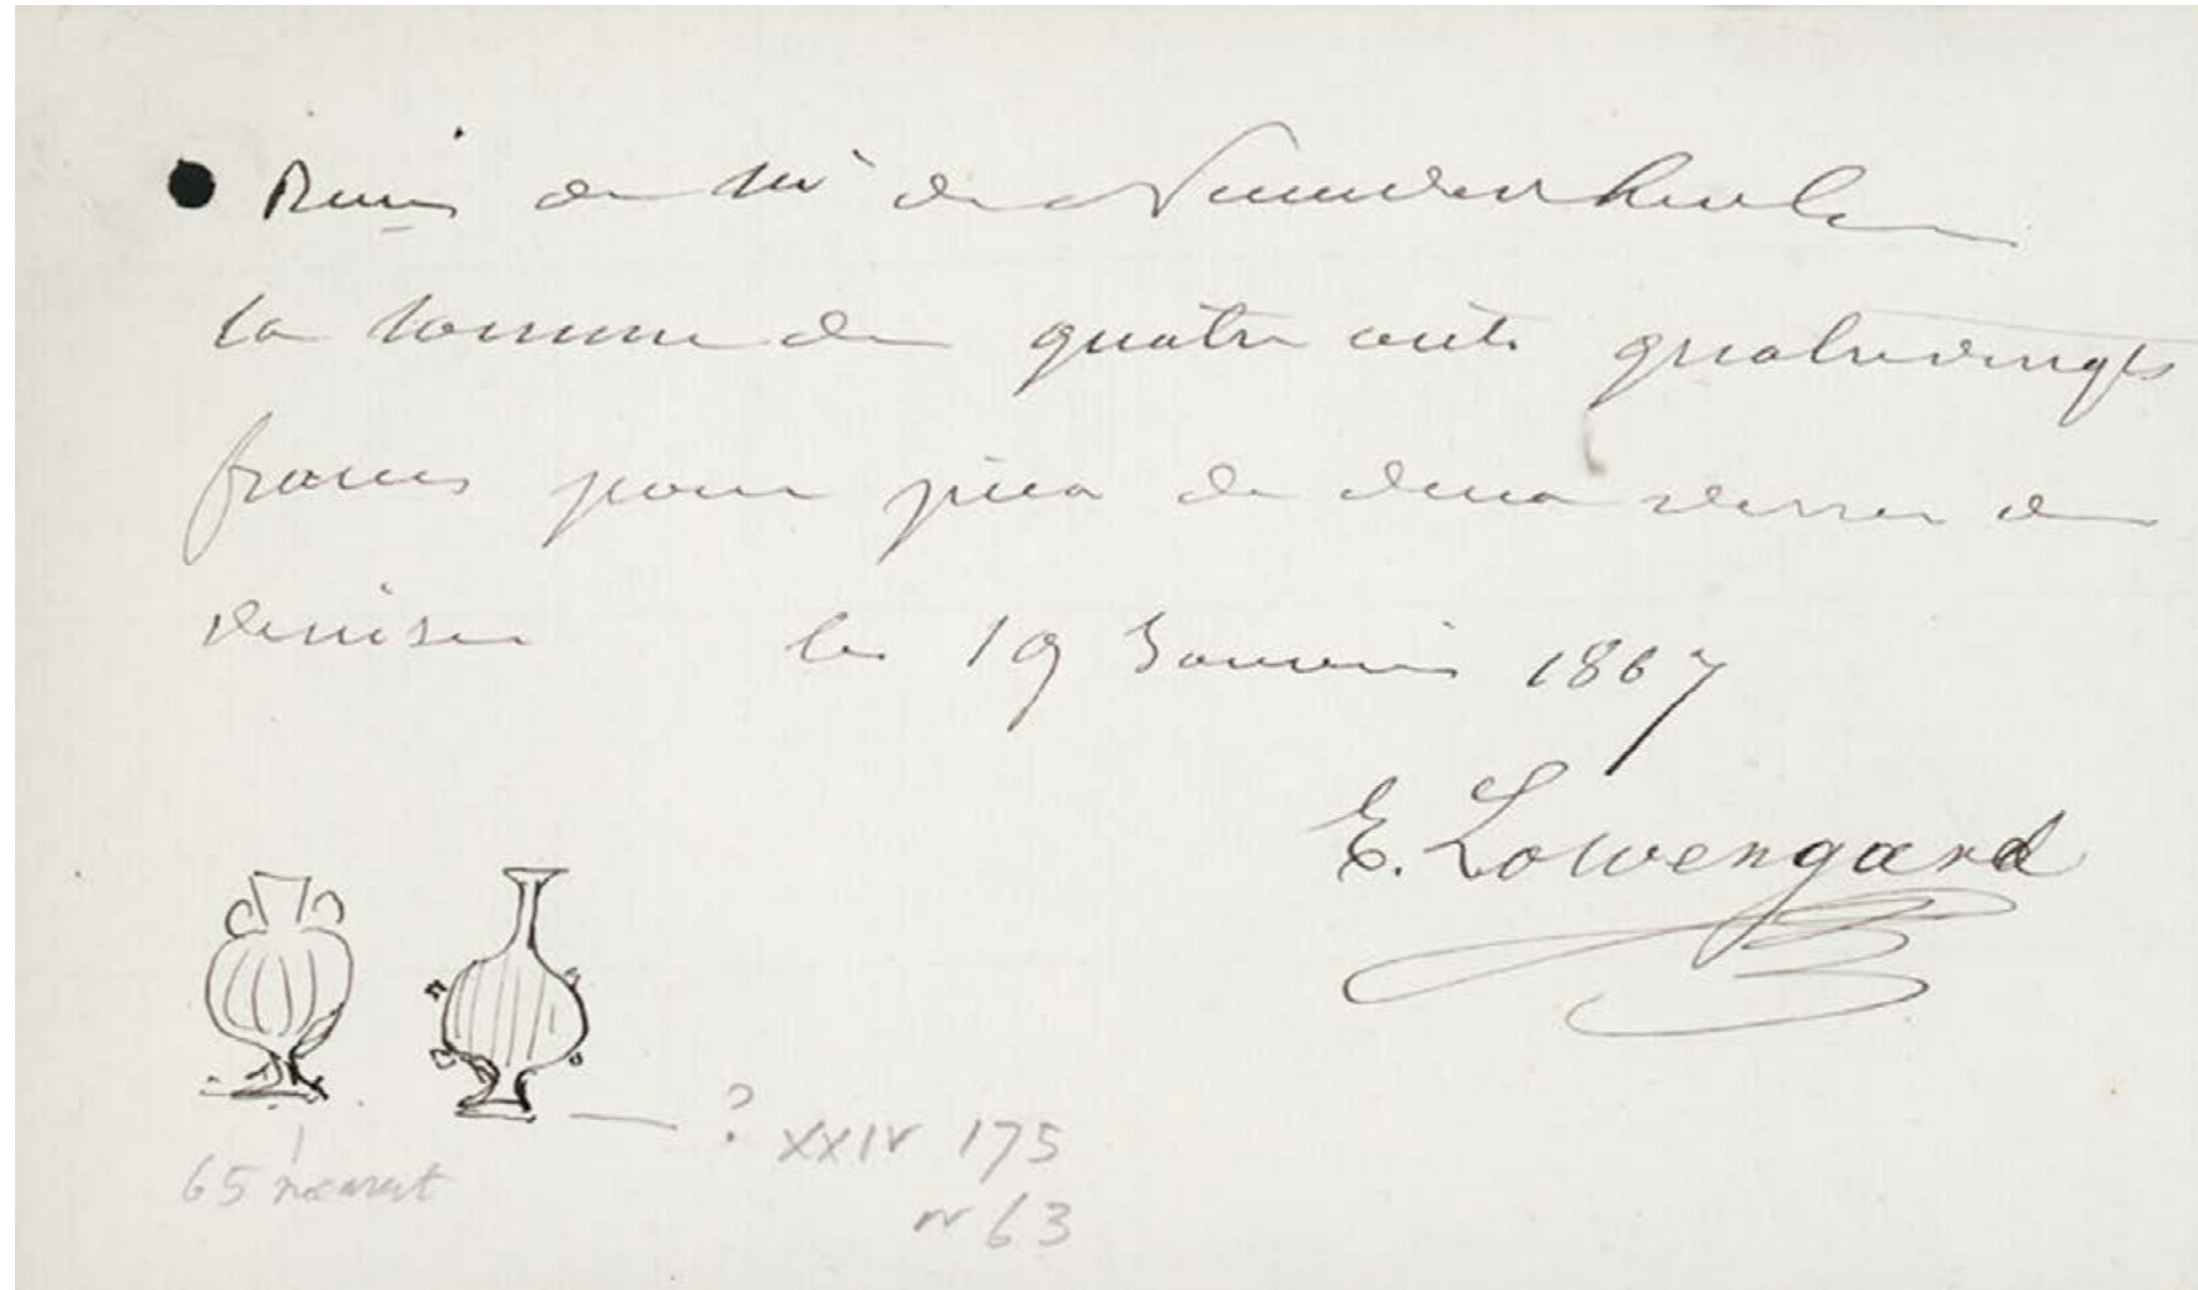 Recu de Mr de Nieuwerkerke
la somme de quatre cents quatrevingts
francs pour prix de deux verres de
venise le 19 Janvier 1867
E. Lowengard
? XXIV 175
65 nearest
n 63